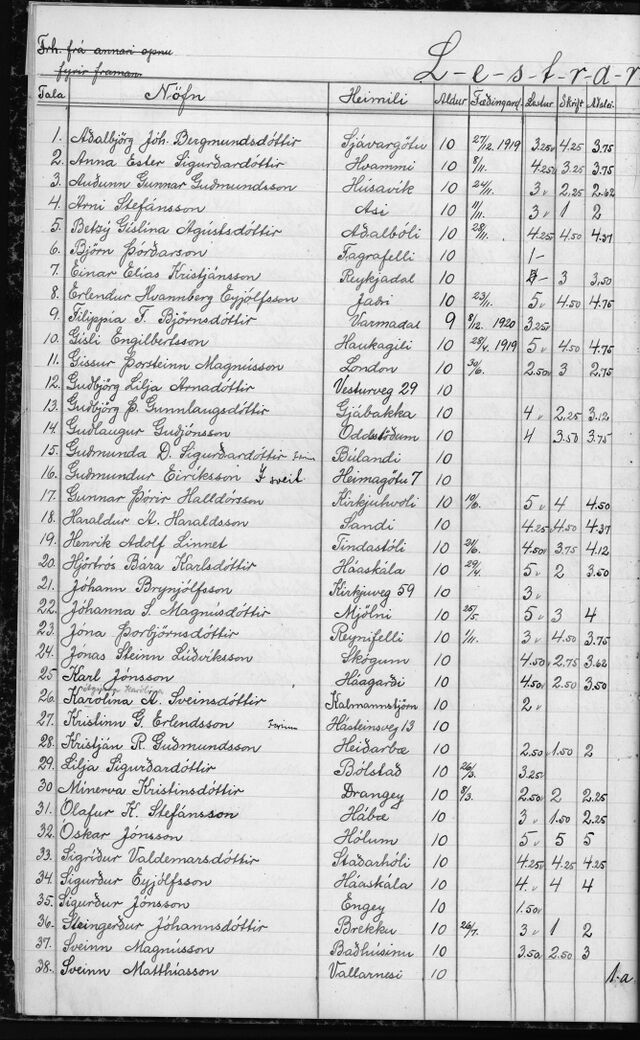 Frh. frá annari opnu
fyrir framan.
L-e-s-t-r-a-r
Tala Nöfn Heimili Aldur Fæðingard. Lestur Skrift
1. Aðalbjörg Jóh. Bergmundsdóttir Sjávargötu 10 27/12. 1919 3.25v 4.25 3.75
2. Anna Ester Sigurðardóttir Hvammi 10 8/11. 4.25v 3.25 3.75
3. Auðunn Gunnar Guðmundsson Húsavík 10 24/11. 3 v 2.25 2.62
4. Árni Stefánsson Ási 10 11/11. 3 v 1 2
5. Betsý Gíslína Ágústsdóttir Aðalbóli 10 28/11. 4.25 4.50 4.37
6. Björn Þórðarson Fagrafelli 10 1-
7. Einar Elías Kristjánsson Reykjadal 10 3 3.50
8. Erlendur Hvannberg Eyjólfsson Jaðri 10 23/11. 5 v 4.50 4.75
9. Filippía F. Björnsdóttir Varmadal 9 8/12. 1920 3.25v
10. Gísli Engilbertsson Haukagili 10 28/4. 1919 5 v 4.50 4.75
11. Gissur Þorsteinn Magnússon London 10 30/6. 2.50v 3 2.75
12. Guðbjörg Lilja Árnadóttir Vesturveg 29 10
13. Guðbjörg Þ. Gunnlaugsdóttir Gjábakka 10 4 v 2.25 3.12
14. Guðlaugur Guðjónsson Oddstöðum 10 4 3.50 3.75
15. Guðmunda D. Sigurðardóttir Búlandi 10
16. Guðmundur Eiríksson Í sveit Heimagötu 7 10
17. Gunnar Þórir Halldórsson Kirkjuhvoli 10 10/6. 5 v 4 4.50
18. Haraldur Á. Haraldsson Sandi 10 4.25v 4.50 4.37
19. Henrik Adolf Linnet Tindastóli 10 21/6. 4.50v 3.75 4.12
20. Hjörtrós Bára Karlsdóttir Háaskála 10 29/4. 5 v 2 3.50
21. Jóhann Brynjólfsson Kirkjuveg 59 10 3 v
22. Jóhanna S. Magnúsdóttir Mjölni 10 25/5. 5 v 3 4
23. Jóna Þorbjörnsdóttir Reynifelli 10 1/11. 3 v 4.50 3.75
24. Jónas Steinn Lúðvíksson Skógum 10 4.50 2.75 3.62
25 Karl Jónsson Háagarði 10 4.50v 2.50 3.50
26. Karólína Á. Sveinsdóttir Kalmannstjörn 10 2 v
27. Kristinn G. Erlendsson Hásteinsveg 13 10
28. Kristján R. Guðmundsson Heiðarbæ 10 2.50 1.50 2
29. Lilja Sigurðardóttir Bólstað 10 26/3. 3.25
30 Minerva Kristinsdóttir Drangey 10 8/3. 2.50 2 2.25
31. Ólafur K. Stefánsson Hábæ 10 3 v 1.50 2.25
32. Óskar Jónsson Hólum 10 5 v 5 5
33. Sigríður Valdemarsdóttir Staðarhóli 10 4.25v 4.25 4.25
34. Sigurður Eyjólfsson Háaskála 10 4. v 4 4
35. Sigurður Jónsson Engey 10 1.50v
36. Steingerður Jóhannsdóttir Brekku 10 26/7. 3 v 1 2
37. Sveinn Magnússon Baðhúsinu 10 3.50 2.50 3
38. Sveinn Matthíasson Vallarnesi 10
1.a